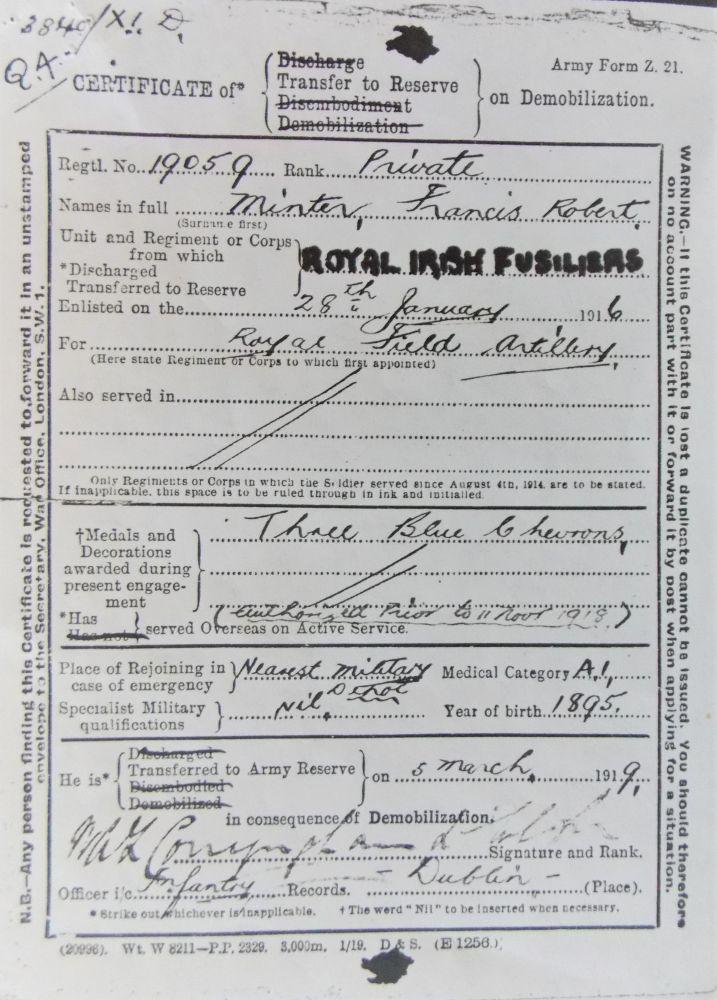 3840/XI. D.
Q.A.
Army Form Z. 21.
CERTIFICATE of*
Discharge
Transfer to Reserve
Disembodiment
Demobilization
on Demobilization.
Regtl. No. 19059 Rank Private
Names in full Minter, Francis Robert
(Surname first)
Unit and Regiment or Corps
from which
*Discharged
Transferred to Reserve
ROYAL IRISH FUSILIERS
Enlisted on the 28th January 1916
For Royal Field Artillery
(Here state Regiment or Corps to which first appointed)
Also served in
Only Regiments or Corps in which the Soldier served since August 4th, 1914, are to be stated.
If inapplicable, this space is to be ruled through in ink and initialled.
†Medals and
Decorations
awarded during
present engage-
ment
Three Blue Chevrons,
(authorized Prior to 11 Novr 1918.)
*Has
Has not
served Overseas on Active Service.
Place of Rejoining in
case of emergency
Nearest military
Depot
Medical Category A.1,
Specialist Military
qualifications
Nil,
Year of birth 1895.
He is*
Discharged
Transferred to Army Reserve
Disembodied
Demobilized
on 5 March, 1919,
in consequence of Demobilization.
Signature and Rank.
Officer i/c Infantry Records. Dublin (Place).
* Strike out whichever is inapplicable. † The word "Nil" to be inserted when necessary.
(20996). Wt. W 8211—P.P. 2329. 3,000m. 1/19. D & S. (E 1256.)
N.B.—Any person finding this Certificate is requested to forward it in an unstamped
envelope to the Secretary, War Office, London, S.W. 1.
WARNING.—If this Certificate is lost a duplicate cannot be issued. You should therefore
on no account part with it or forward it by post when applying for a situation.